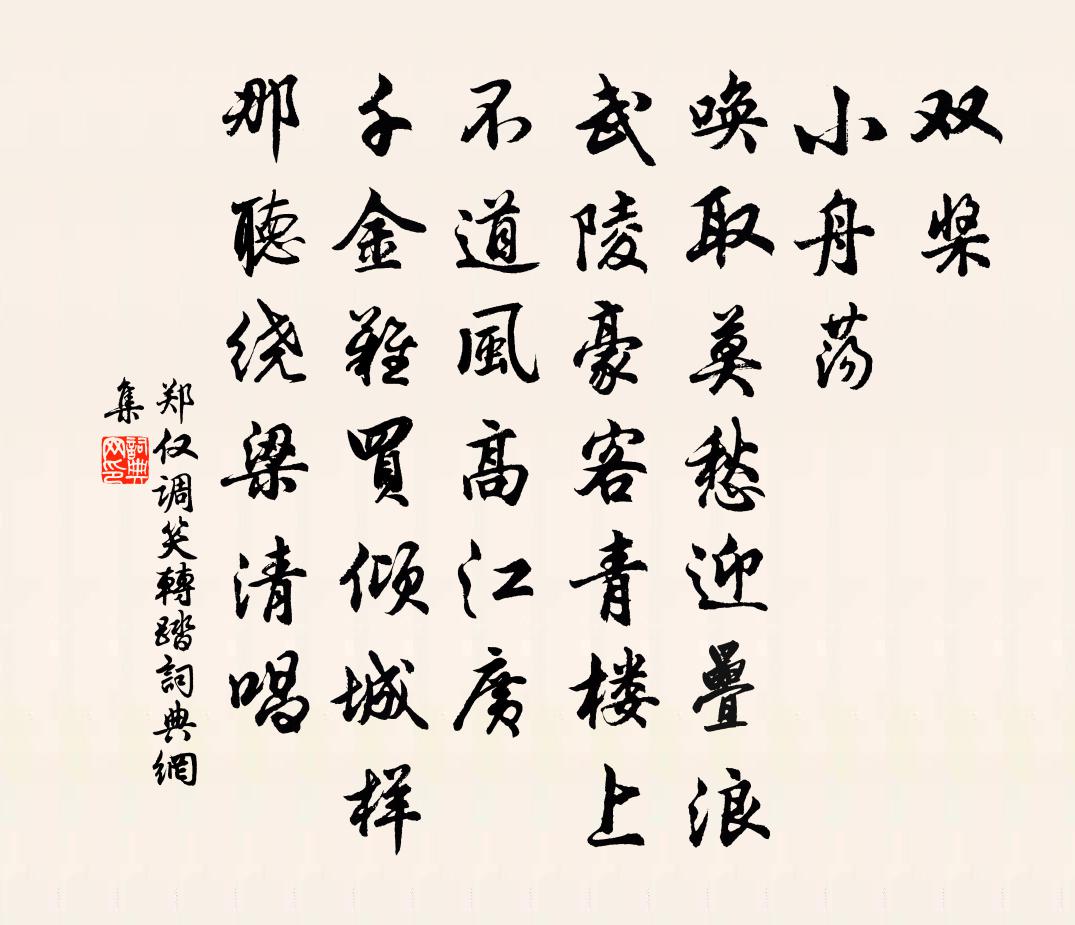 双桨
小舟荡
唤取莫愁迎疊浪
武陵豪客青楼上
不道風高江廣
千金難買倾城样
那聽绕梁清唱
郑仅调笑轉踏詞典網
集
詞典网印